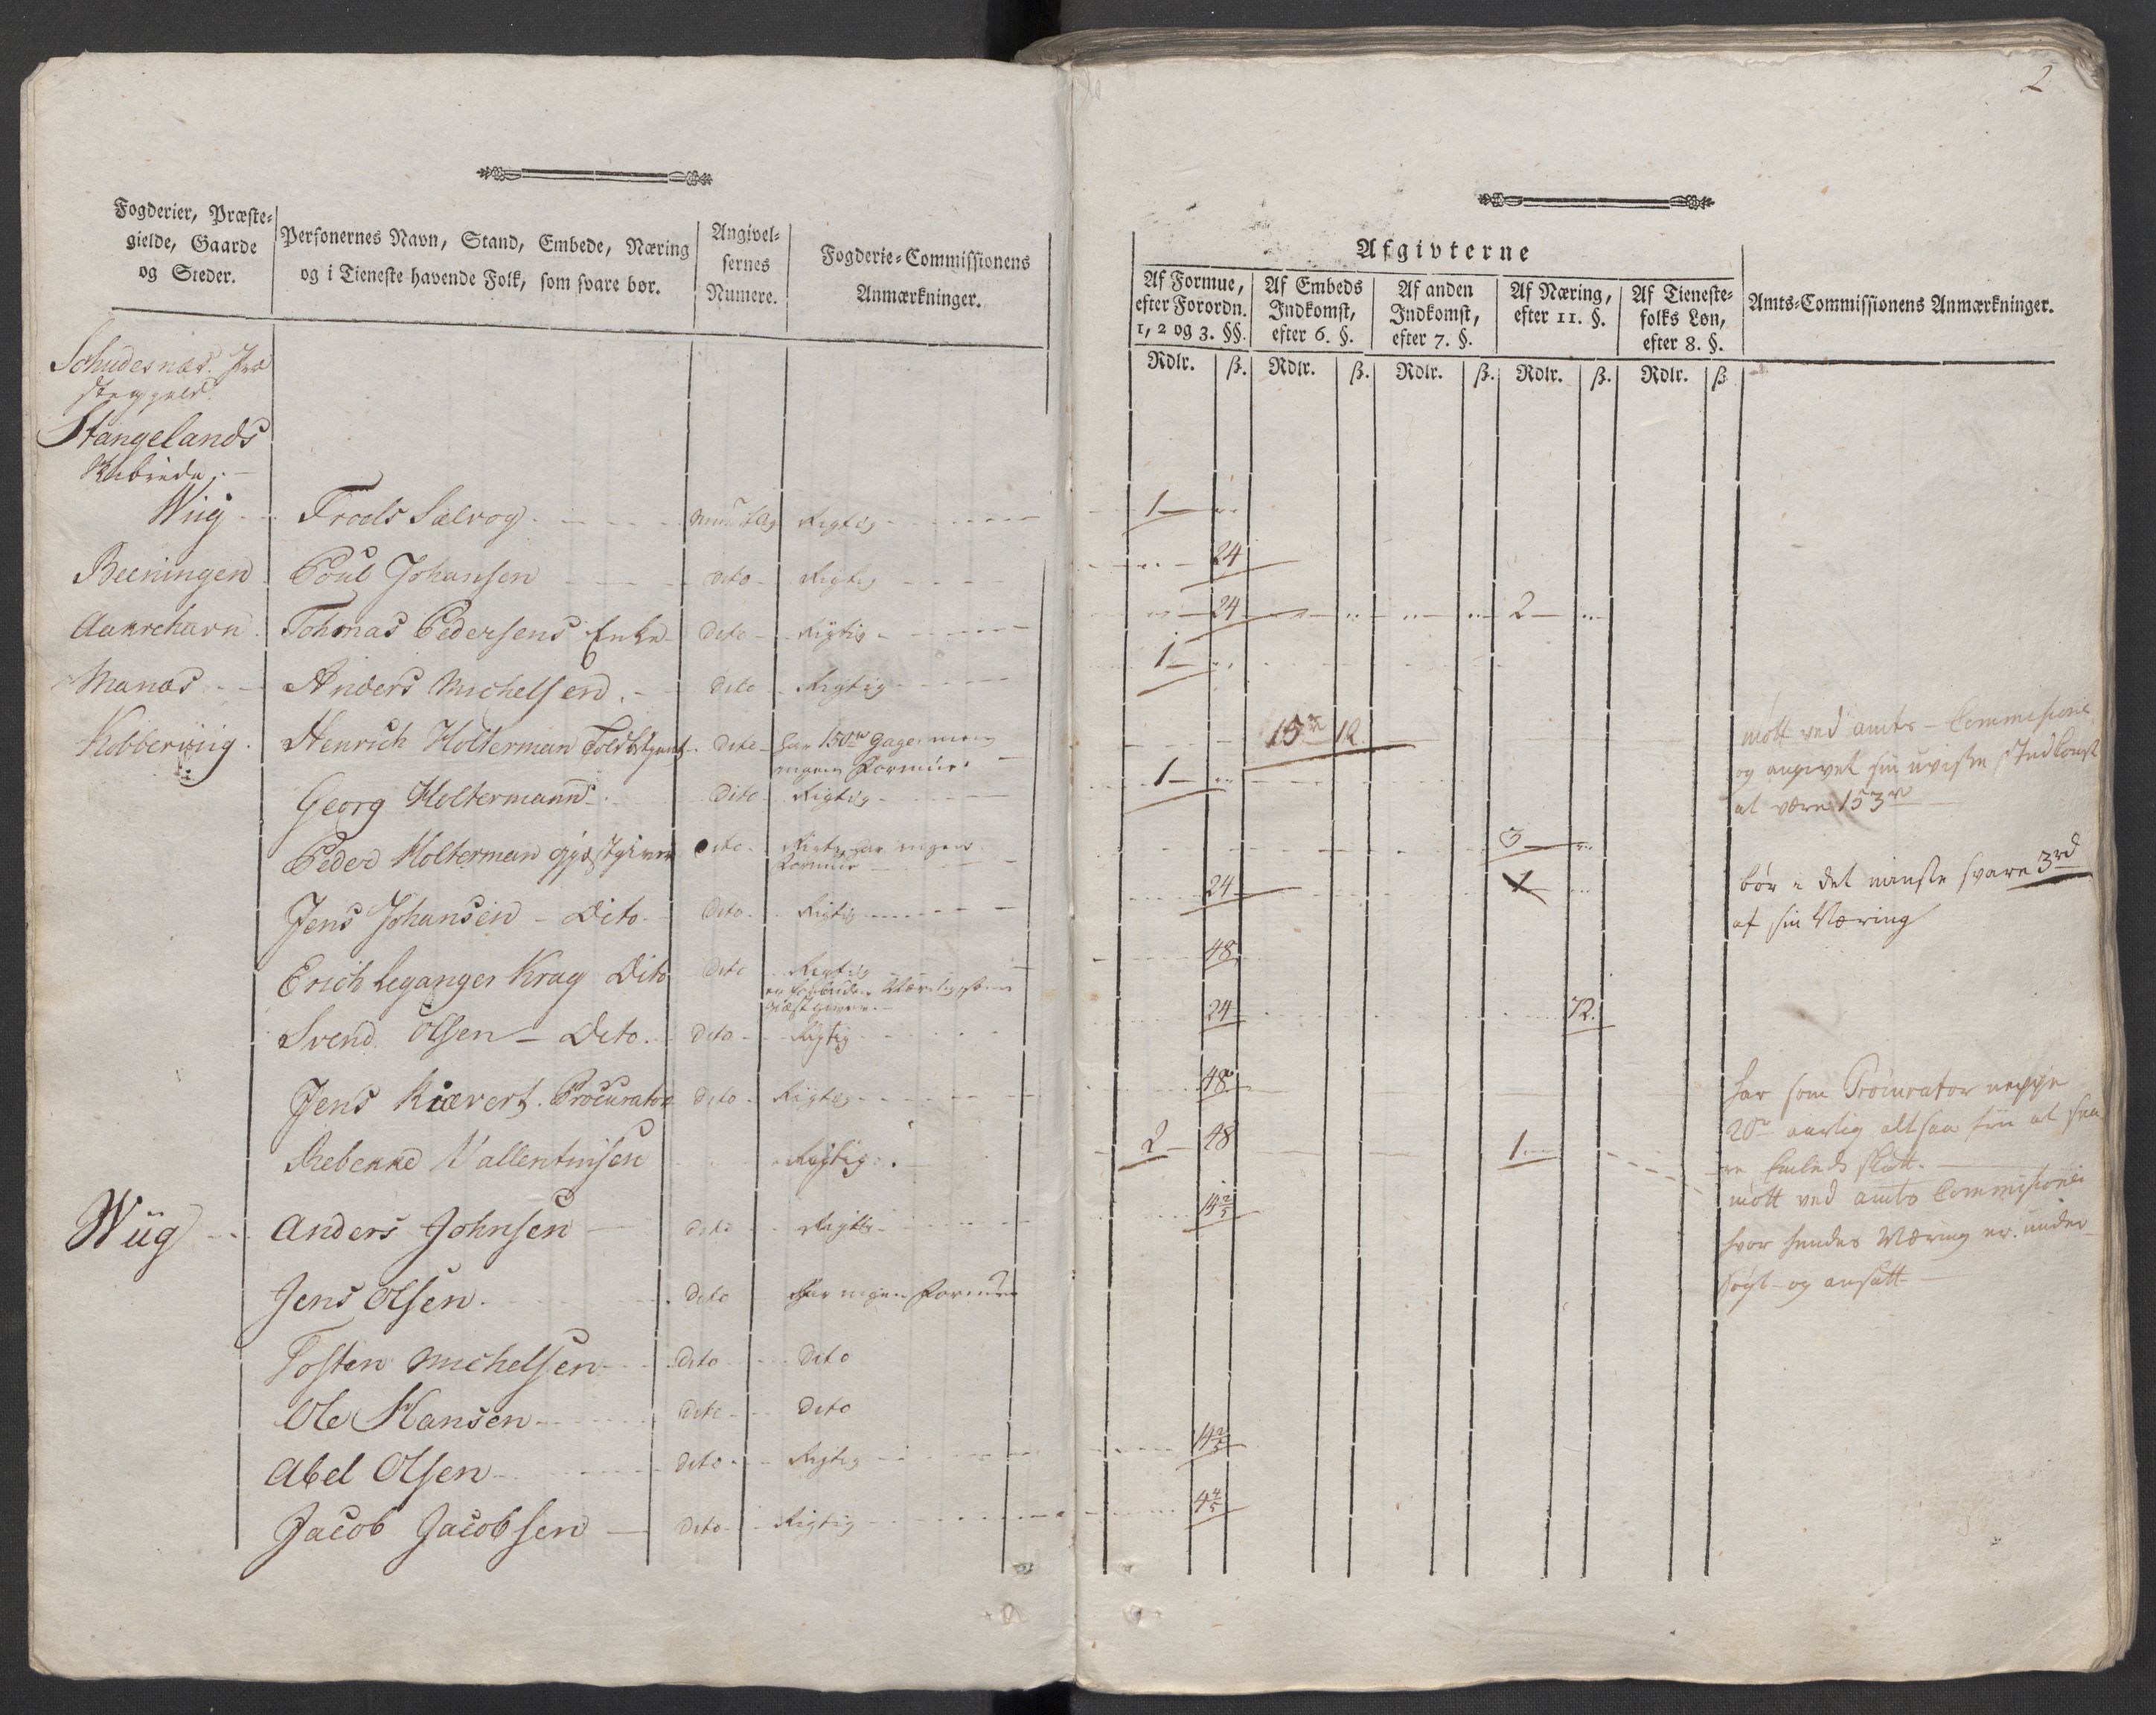 Fogderier, Præste-
gielde, Gaarde
og Steder.
Personernes Navn, Stand, Embede, Næring
og i Tieneste havende Folk, som svare bør.
Angivel-
sernes
Numere.
Fogderie-Commissionens
Anmærkninger.
Schudesnæs Præ
stegield
Stangelands
Skibrede
Wiig Troels Salvog Rigtig
Beeningen Poul Johansen Dito Rigtig
Aakrehavn Tohmas Pedersens Enke Dito Rigtig
Manæs Anders Michelsen Dito Rigtig
Kobberwiig Henrich Holterman Dito har 150 rd Gage, men
ingen Formue
Georg Holtermann Dito Rigtig
Peder Holterman Giæstgiver Dito Rigtig har ingen
Formue
Jens Johansen - Dito Dito Rigtig
Erich Leganger Krag Dito Dito Rigtig
Næring som
Giæstgiver
Svend Olsen - Dito Dito Rigtig
Jens Kiævert Procurator Dito Rigtig
Rebekke Vallentinsen Rigtig
Wiig Anders Johnsen Dito Rigtig
Jens Olsen Dito Har ingen Formue
Tosten Michelsen Dito Dito
Ole Hansen Dito Dito
Abel Olsen Dito Rigtig
Jacob Jacobsen Dito Rigtig
2
Afgivterne
Af Formue,
efter Forordn.
1, 2 og 3. §§.
Af Embeds
Indkomst,
efter 6. §.
Af anden
Indkomst,
efter 7. §.
Af Næring,
efter 11. §.
Af Tieneste-
folks Løn,
efter 8. §.
Amts-Commissionens Anmærkninger.
Rdlr. ß. Rdlr. ß. Rdlr. ß. Rdlr. ß. Rdlr. ß
1
24
24 2
1
15 12
1
3
24 1
48
24 72
48
2 48 1
14 2/5
14 2/5
4 4/5
mött ved amts-Commissionen
og angivet sin uvisse Indkomst
at være 153 rd
bør i det minste svare 3 rd
af sin Næring
har som Procurator neppe
20 rd aarlig altsaa fri at sva
re Embeds Skatt
mött ved amts Commissionen
hvor hendes Næring er under
søgt og ansatt